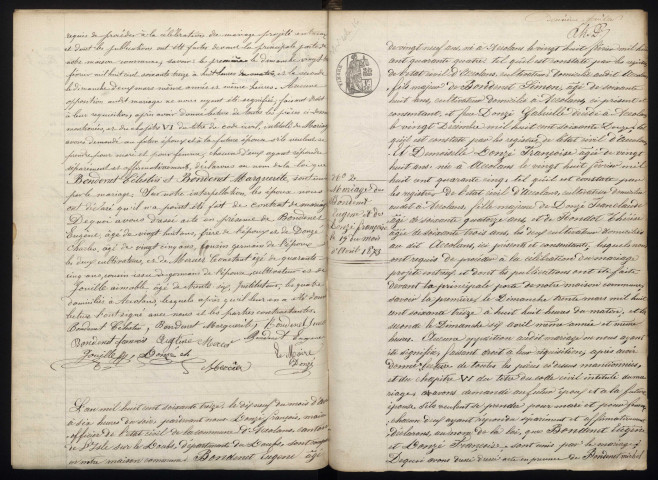 requis de procéder à la célébration du mariage projeté entre eux
et dont les publications ont été faites devant la principale porte de
notre maison commune, savoir la première le dimanche vingt
huit heures du matin, et la seconde
le dimanche deux mars même année et même heure. Aucune
opposition audit mariage ne nous ayant été signifiée, faisant droit
à leur réquisition, après avoir donné lecture de toutes les pièces ci-dessus
mentionnées, et du chapitre VI du titre du code civil, intitulé du Mariage
avons demandé au futur époux et à la future épouse s'ils veulent se
prendre pour mari et pour femme, chacun d'eux ayant répondu
séparément et affirmativement, déclarons au nom de la loi que
Bondenet Célestin et Bondenet Marguerite, sont unis
par le mariage. Sur notre interpellation, les époux nous
ont déclaré qu'il n'a point été fait de contrat de mariage
De quoi avons dressé acte en présence de Bondenet
Eugène, âgé de vingt huit ans, frère de l'époux, et de Donzé
Charles, âgé de vingt cinq ans, cousin germain de l'époux
les deux cultivateurs, et de Mercier Constant âgé de quarante
cinq ans, cousin issu de germain de l'épouse, cultivateur et de
Jouille aimable, âgé de trente six, Instituteur, les quatre
domiciliés à Accolans, lesquels après qu'il leur en a été donné
lecture l'ont signé avec nous et les parties contractantes.
Bondenet Célestin, Bondenet Marguerite, Bondenet
Bondenet francois Mercier Bondenet Eugene
Jouille Donzé ch Le Maire
Mercier Donzé
L'an mil huit cent soixante treize, le dix neuf du mois d'Avril
à six heures du soir, pardevant nous Donzé François, maire
officier de l'état civil de la commune d'Accolans, canton
de l'Isle sur le Doubs, département du Doubs, sont comparus
en notre maison commune Bondenet Eugène âgé
N° 2
Mariage de
Bondenet
Eugène et de
Donzé françoise
le 19 du mois
d'Avril 1873
de vingt neuf ans, né à Accolans le vingt huit février mil huit
cent quarante quatre, tel qu'il est constaté par les registres
de l'état civil d'Accolans, cultivateur, domicilié audit Accolans,
fils majeur de Bondenet Simon, âgé de soixante
huit ans, cultivateur domicilié à Accolans, ici présent et
consentant, et feue Donzé Gabrielle décédée à Accolans
le vingt Décembre mil huit cent soixante Douze, tel
qu'il est constaté par les registres de l'état civil d'Accolans
Et Demoiselle Donzé Françoise, âgée de vingt
huit ans, née à Accolans le vingt février mil huit
cent quarante cinq, tel qu'il est constaté par
les registres de l'état civil d'Accolans, cultivatrice domiciliée
audit à Accolans, fille majeure de Donzé
âgé de soixante quatorze ans, et de Thérèse
âgée de soixante trois ans, les deux cultivateurs domiciliés
au dit Accolans, ici présents et consentants, lesquels nous
ont requis de procéder à la célébration du mariage
projeté entre eux et dont les publications ont été faites
devant la principale porte de notre maison commune,
savoir la première, le Dimanche trente mars mil huit
cent soixante treize à huit heures du matin, et la
seconde le Dimanche six avril même année et même
heure. Aucune opposition audit mariage ne nous ayant
été signifiée, faisant droit à leur réquisition, après avoir
donné lecture de toutes les pièces ci-dessus mentionnées, et
du chapitre VI du titre du code civil intitulé du
mariage, avons demandé au futur époux et à la future
épouse s'ils veulent se prendre pour mari et pour femme,
chacun d'eux ayant répondu séparément et affirmativement,
déclarons, au nom de la loi, que Bondenet Eugène
et Donzé Françoise, sont unis par le mariage.
De quoi avons dressé acte en présence de Bondenet